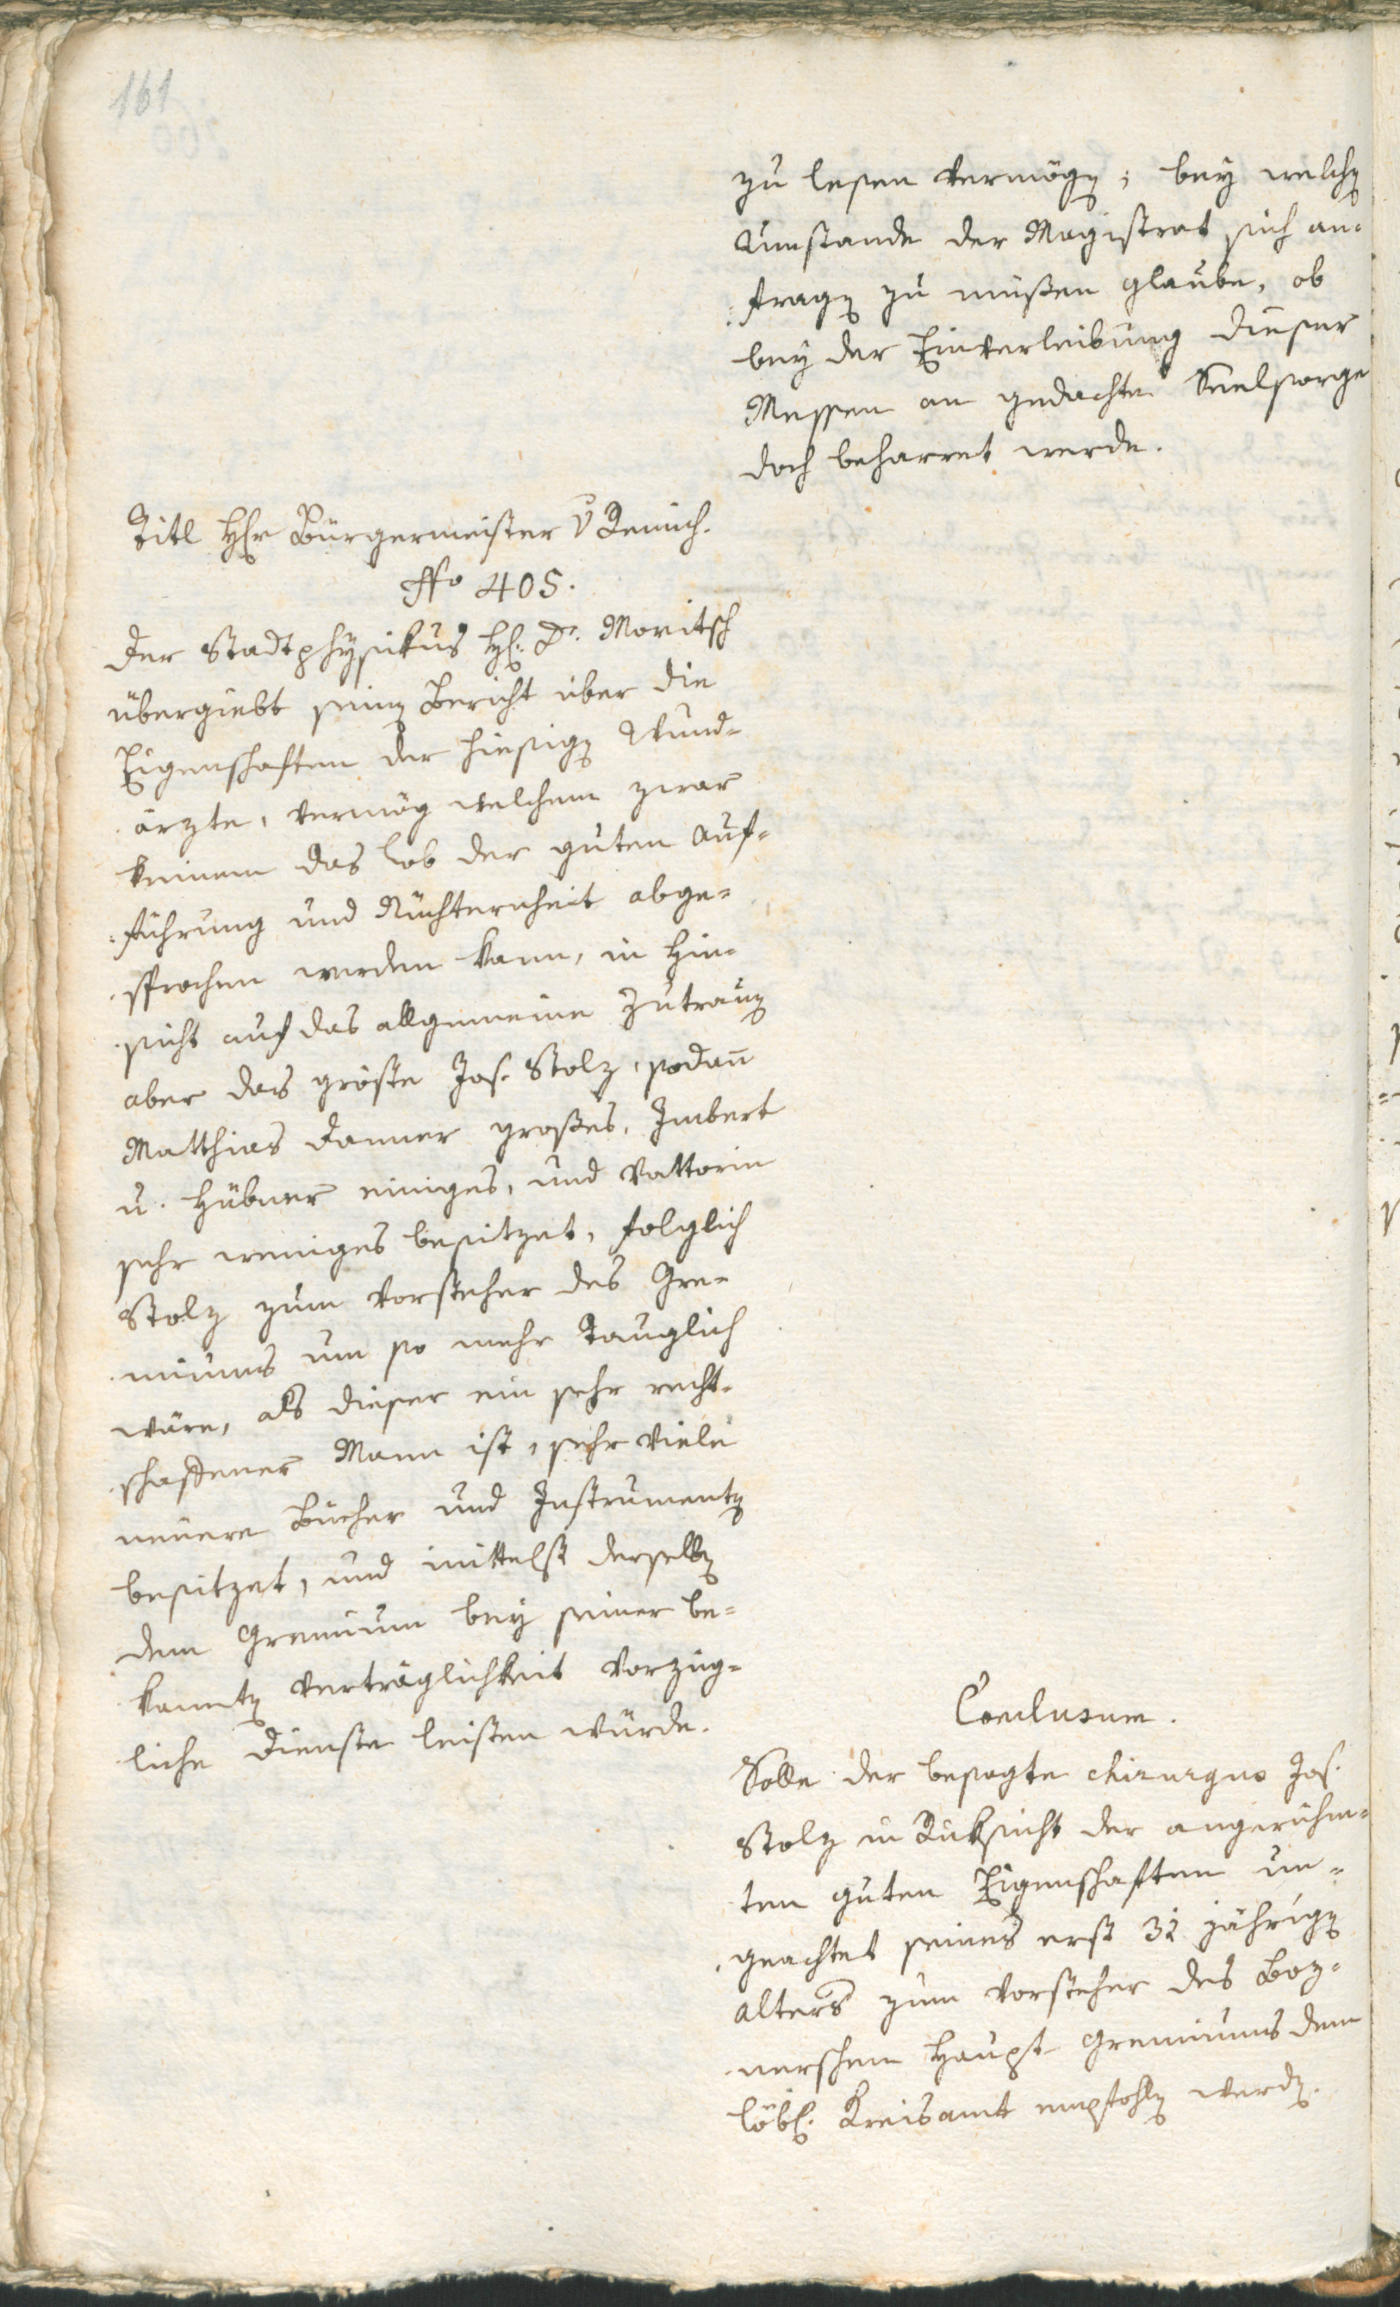 161
zu lesen vermögen; bey welchen
Umstande der Magistrat sich an-
fragen zu müßen glaube, ob
bey der Einverleibung dieser
Messen an gedachte Seelsorge
doch beharret werde.
Titl Hr Bürgermeister v Remich.
No 405.
Der Stadtphysikus H. Dr. Moritsch
übergiebt seinen Bericht über die
Eigenschaften der hiesigen Wund-
ärzte, vermög welchem zwar
keinem das Lob der guten Auf-
führung und Nüchternheit abge-
sprochen werden kann, in Hin-
sicht auf das allgemeine Zutrauen
aber das größte Jos. Stolz, sodann
Matthias Danner großes, Imbert
u. Hübner einiges, und Vattorin
sehr weniges besitzet, folglich
Stolz zum Vorsteher des Gre-
miums um so mehr tauglich
wäre, als dieser ein sehr recht-
schaffener Mann ist, sehr viele
neuere Bücher und Instrumenten
besitzet, und mittelst derselben
dem Gremium bey seiner be-
kannten Verträglichkeit vorzüg-
liche Dienste leisten würde.
Conclusum.
Solle der besagte chirurgus Jos.
Stolz in Rüksicht der angerühm-
ten guten Eigenschaften un-
geachtet seines erst 32 jährigen
Alters zum Vorsteher des Boz-
nerschen Haupt Gremiums dem
löbl. Kreisamt empfohlen werden.